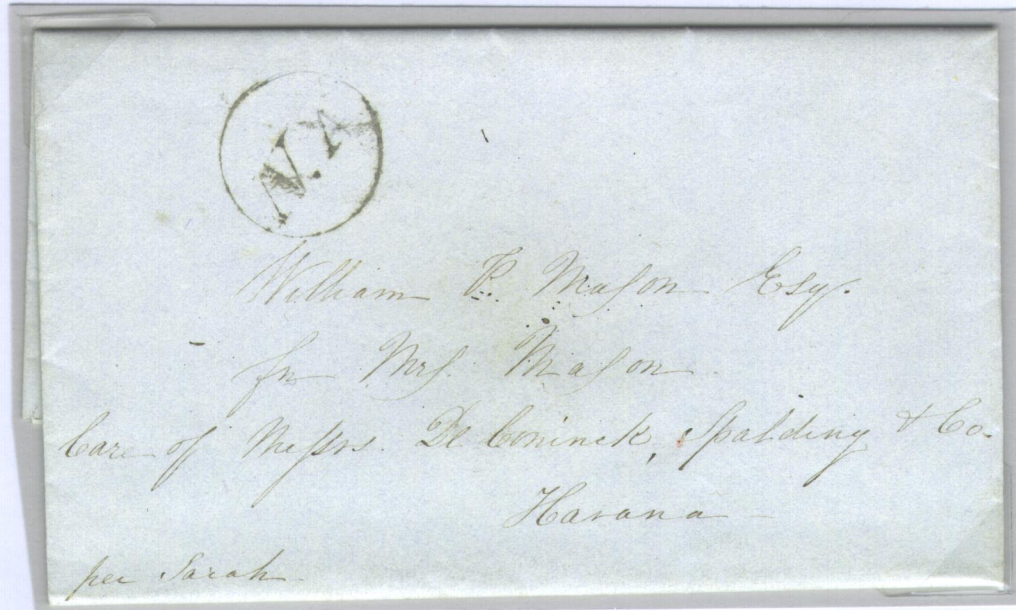 N.A
William P. Mason Esq.
for Mrs. Mason
Care of Messrs. De Coninck, Spalding & Co.
Havana
per Sarah